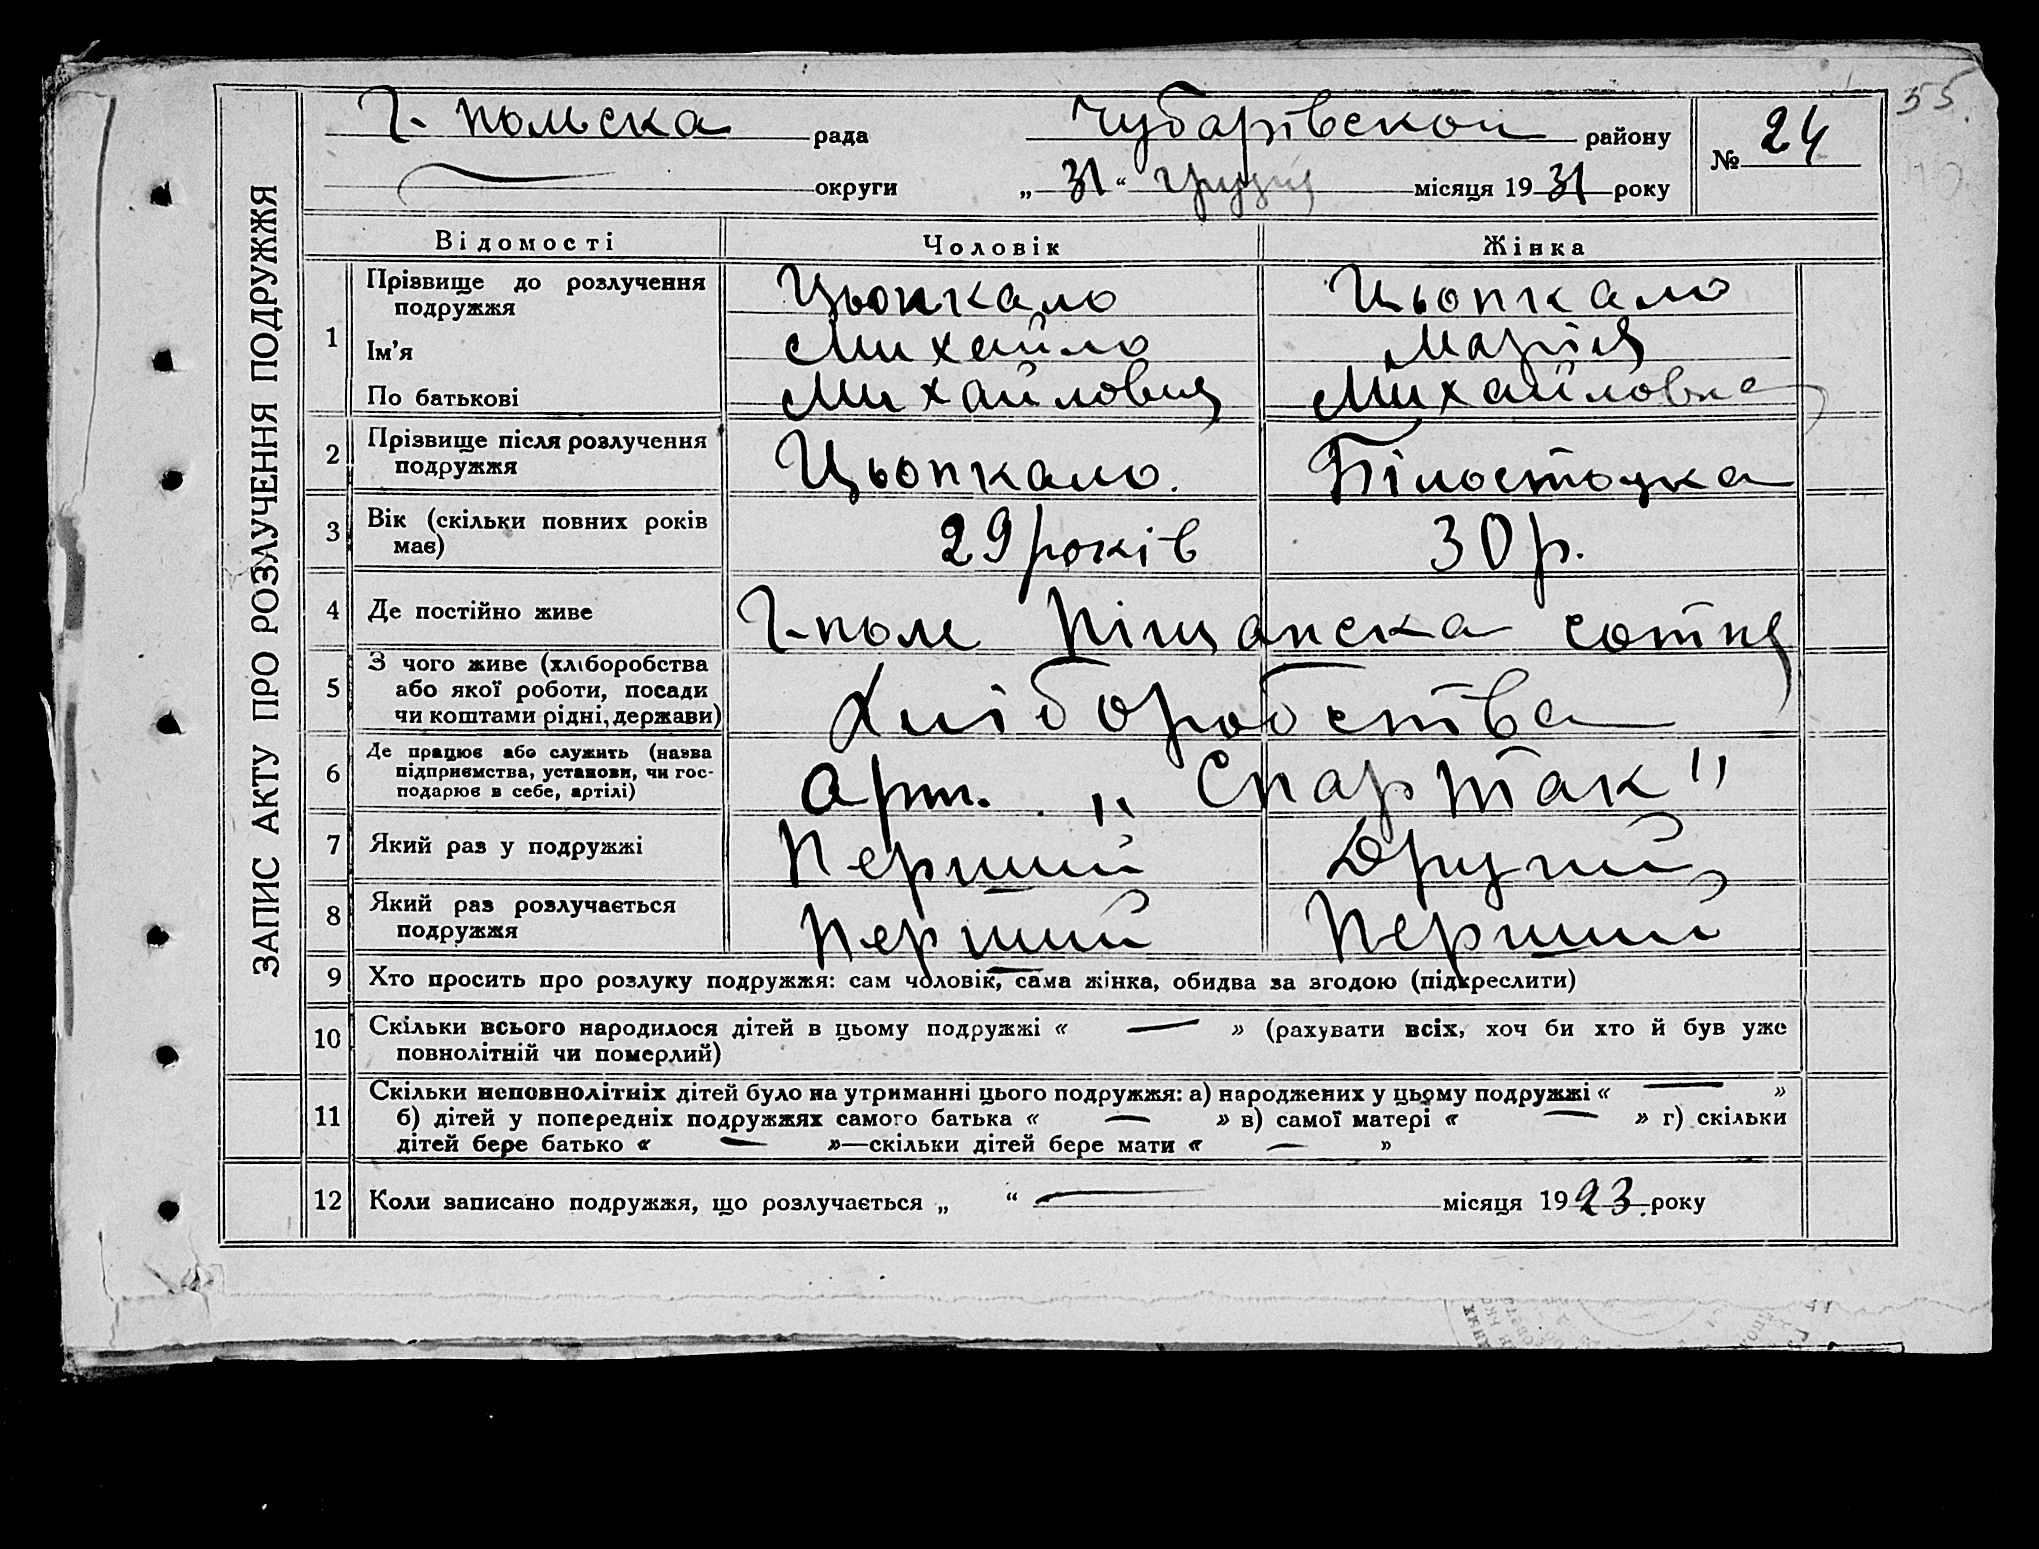 55
ЗАПИС АКТУ ПРО РОЗЛУЧЕННЯ ПОДРУЖЖЯ
Г. польска рада Чубарівской району № 24
округи „ 31 “ грудня місяця 19 31 року
Відомості Чоловік Жінка
1 Прізвище до розлучення Цьопкало Цьопкало
подружжя
Ім’я Михайло Марія
По батькові Михайлович Михайловна
2 Прізвище після розлучення Цьопкало. Білостоцка
подружжя
3 Вік (скільки повних років 29 років 30 р.
має)
4 Де постійно живе Г-поле Піщанска сотня
5 З чого живе (хліборобства Хліборобства
або якої роботи, посади
чи коштами рідні, держави)
6 Де працює або служить (назва арт. „ Спартак"
підприємства, установи, чи гос-
подарює в себе, артілі)
7 Який раз у подружжі Перший Другий
8 Який раз розлучається Перший Перший
подружжя
9 Хто просить про розлуку подружжя: сам чоловік, сама жінка, обидва за згодою (підкреслити)
10 Скільки всього народилося дітей в цьому подружжі « — » (рахувати всіх, хоч би хто й був уже
повнолітній чи померлий)
11 Скільки неповнолітніх дітей було на утриманні цього подружжя: а) народжених у цьому подружжі « — »
б) дітей у попередніх подружжях самого батька « — » в) самої матері « — » г) скільки
дітей бере батько « — »—скільки дітей бере мати « — »
12 Коли записано подружжя, що розлучається „ “ — місяця 19 23 року